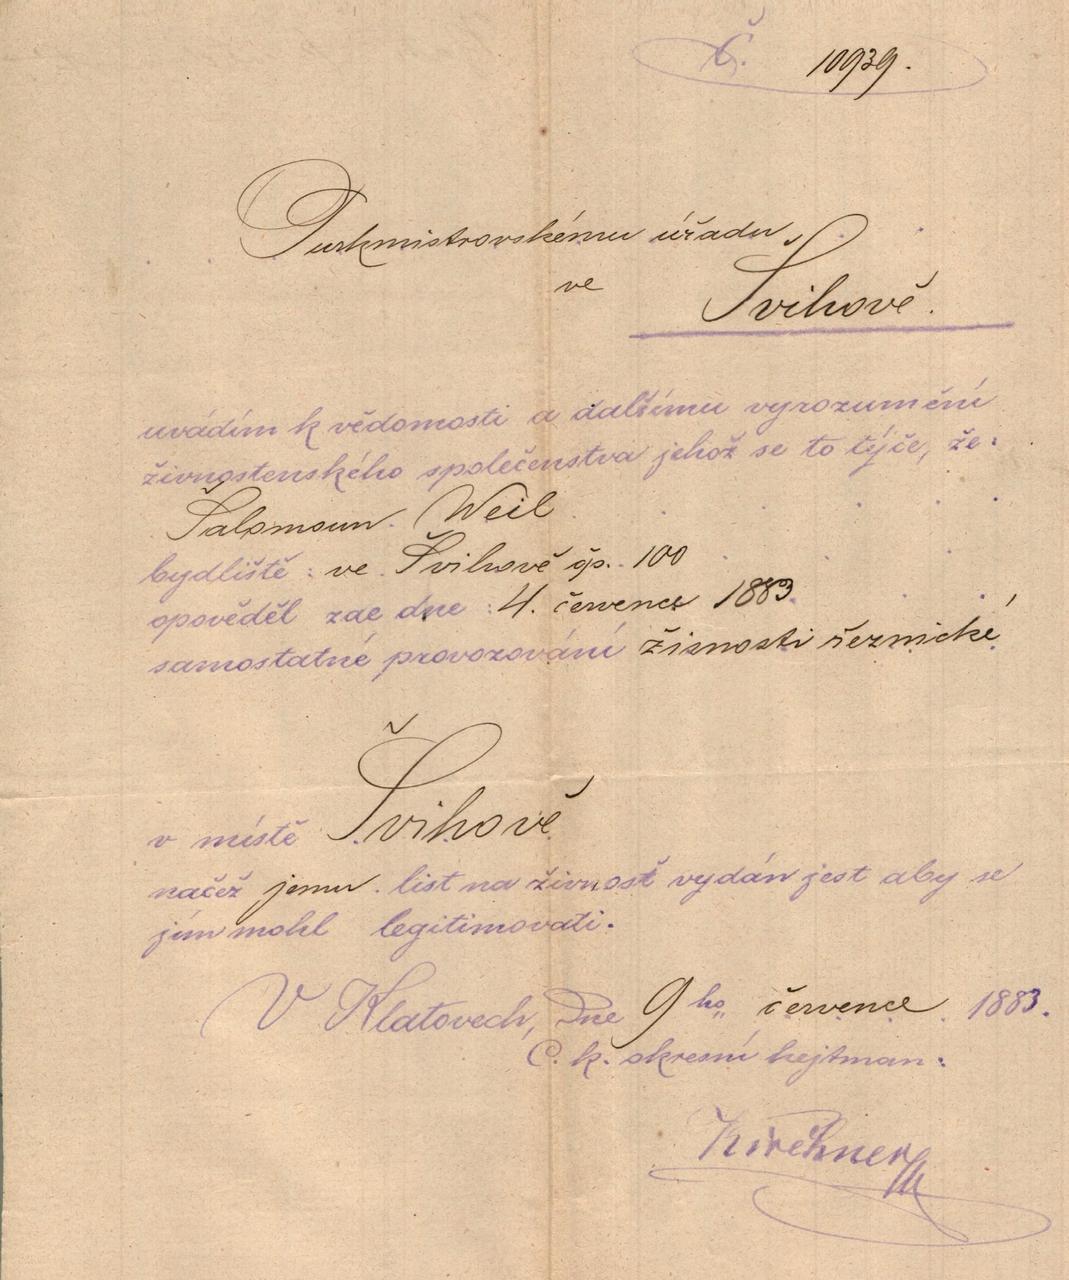 Č. 10939.
Purkmistrovskému úřadu
ve Švihově.
uvádím k vědomosti a dalšímu vyrozumění
živnostenského společenstva jehož se to týče, že:
Šalomoun Weil
bydliště: ve Švihově čp. 100
opověděl zde dne: 4. července 1883
samostatné provozování živnosti řeznické
v místě Švihově
načež jemu list na živnosť vydán jest aby se
jím mohl legitimovati.
V Klatovech, Dne 9ho července 1883.
C. k. okresní hejtman:
Kirchner